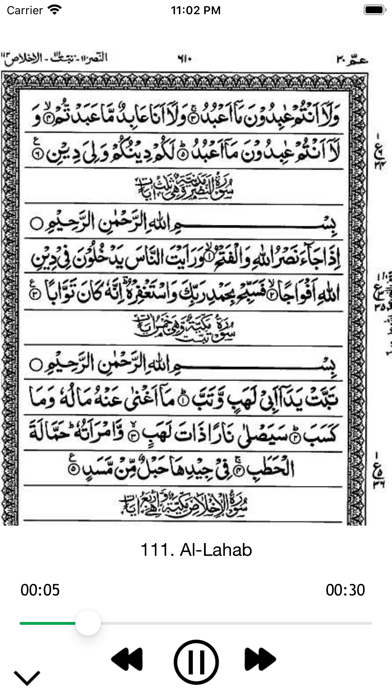 Carrier 11:02 PM
عمّ ٣٠ ٦١٠ النصر ١١٠ تبّت ١١١ الاخلاص ١١٢
وَلَاۤ اَنۡتُمۡ عٰبِدُوۡنَ مَاۤ اَعۡبُدُ ۚ‏﴿۳﴾ وَلَاۤ اَنَا عَابِدٌ مَّا عَبَدۡتُّمۡۙ‏﴿۴﴾ وَ
لَاۤ اَنۡتُمۡ عٰبِدُوۡنَ مَاۤ اَعۡبُدُؕ‏﴿۵﴾ لَكُمۡ دِيۡنُكُمۡ وَلِىَ دِيۡنِ‏﴿۶﴾
سُوۡرَةُ النَّصۡرِ مَدَنِيَّةٌ وَّهِىَ ثَلٰثُ اٰيَاتٍ
بِسۡمِ اللهِ الرَّحۡمٰنِ الرَّحِيۡمِ
اِذَا جَآءَ نَصۡرُ اللهِ وَالۡفَتۡحُۙ‏﴿۱﴾ وَرَاَيۡتَ النَّاسَ يَدۡخُلُوۡنَ فِىۡ دِيۡنِ
اللهِ اَفۡوَاجًاۙ‏﴿۲﴾ فَسَبِّحۡ بِحَمۡدِ رَبِّكَ وَاسۡتَغۡفِرۡهُؔؕ اِنَّهٗ كَانَ تَوَّابًا‏﴿۳﴾
سُوۡرَةُ تَبَّتۡ مَكِّيَّةٌ وَّهِىَ خَمۡسُ اٰيَاتٍ
بِسۡمِ اللهِ الرَّحۡمٰنِ الرَّحِيۡمِ
تَبَّتۡ يَدَاۤ اَبِىۡ لَهَبٍ وَّتَبَّؕ‏﴿۱﴾ مَاۤ اَغۡنٰى عَنۡهُ مَالُهٗ وَمَا
كَسَبَؕ‏﴿۲﴾ سَيَصۡلٰى نَارًا ذَاتَ لَهَبٍۖۚ‏﴿۳﴾ وَّامۡرَاَتُهٗؕ حَمَّالَةَ
الۡحَطَبِۚ‏﴿۴﴾ فِىۡ جِيۡدِهَا حَبۡلٌ مِّنۡ مَّسَدٍ‏﴿۵﴾
سُوۡرَةُ الۡاِخۡلَاصِ مَكِّيَّةٌ وَّهِىَ اَرۡبَعُ اٰيَاتٍ
111. Al-Lahab
00:05 00:30